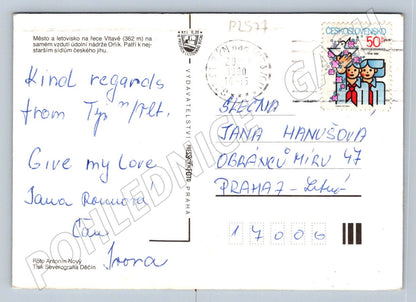 Město a letovisko na řece Vltavě (362 m) na
samém vzdutí údolní nádrže Orlík. Patří k nej-
starším sídlům českého jihu.
Kind regards
from Týn n/Vlt.
Give my love
Jana
Ivona
Foto Antonín Nový
Tisk Severografia Děčín
VYDAVATELSTVÍ PRESSFOTO PRAHA
P2577
ČESKOSLOVENSKO
50
SLEČNA
JANA HANUŠOVA
OBRÁNCŮ MÍRU 47
PRAHA 7 - Letná
17006
POHLEDNICE